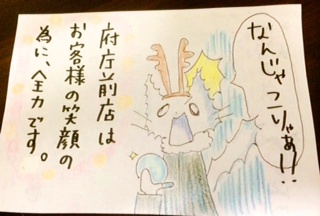 なんじゃこりゃあ!!
府庁前店は
お客様の笑顔の
為に、全力です。